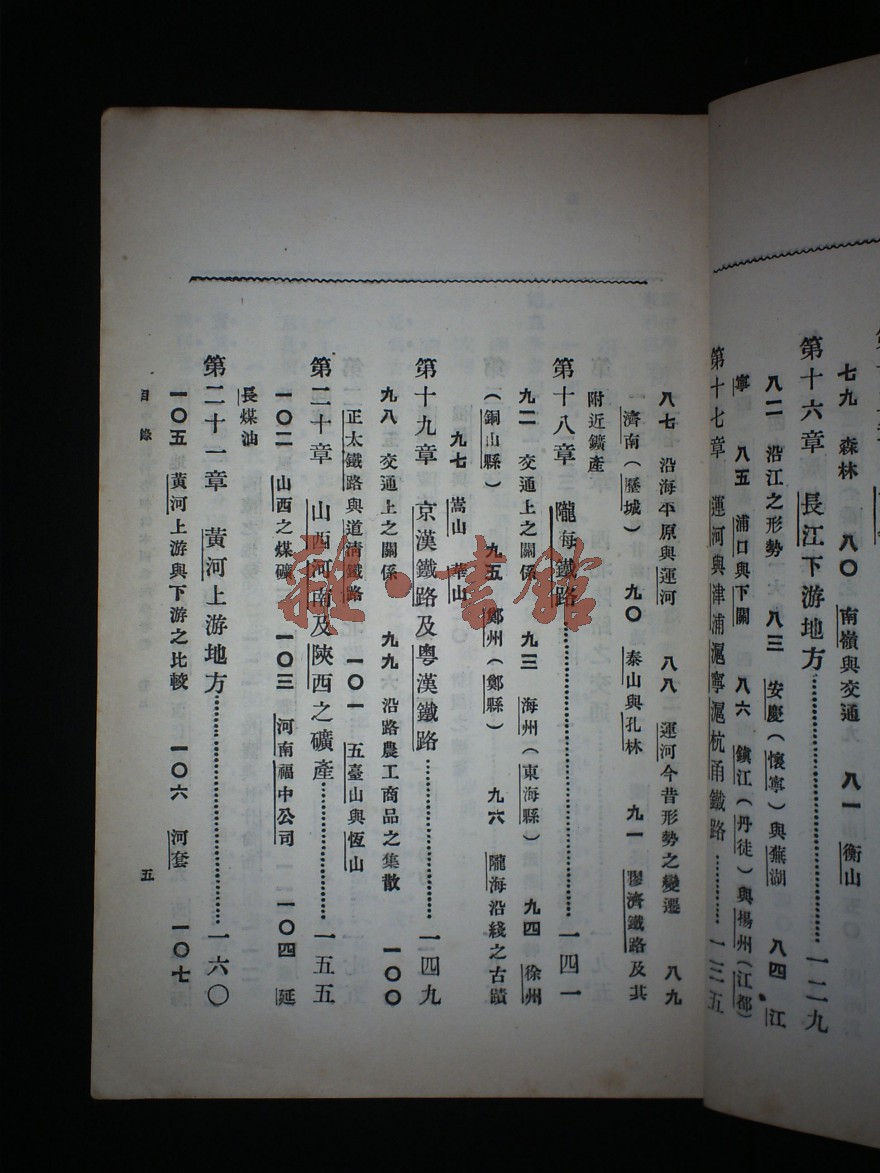 七九 森林 八〇 南嶺與交通 八一 衡山
第十六章 長江下游地方 一二九
八二 沿江之形勢 八三 安慶(懷寧)與蕪湖 八四 江
寧 八五 浦口與下關 八六 鎮江(丹徒)與揚州(江都)
第十七章 運河與津浦滬寧滬杭甬鐵路 一三五
八七 沿海平原與運河 八八 運河今昔形勢之變遷 八九
濟南(歷城) 九〇 泰山與孔林 九一 膠濟鐵路及其
附近鑛產
第十八章 隴海鐵路 一四一
九二 交通上之關係 九三 海州(東海縣) 九四 徐州
(銅山縣) 九五 鄭州(鄭縣) 九六 隴海沿綫之古蹟
九七 嵩山 華山
第十九章 京漢鐵路及粵漢鐵路 一四九
九八 交通上之關係 九九 沿路農工商品之集散 一〇〇
正太鐵路與道清鐵路 一〇一 五臺山與恆山
第二十章 山西河南及陝西之礦產 一五五
一〇二 山西之煤礦 一〇三 河南福中公司 一〇四 延
長煤油
第二十一章 黃河上游地方 一六〇
一〇五 黃河上游與下游之比較 一〇六 河套 一〇七
目錄 五
雜·書館